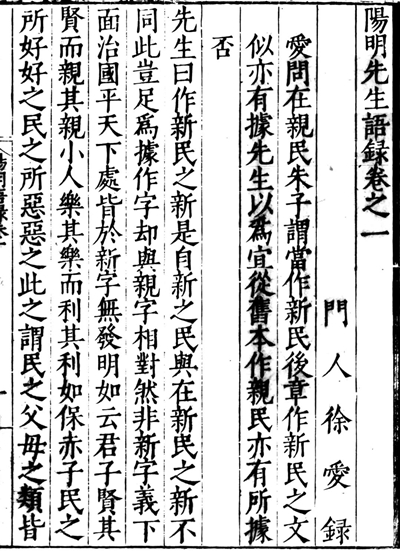 陽明先生語録卷之一
門人徐愛録
愛問在親民朱子謂當作新民後章作新民之文
似亦有據先生以為宜從舊本作親民亦有所據
否
先生曰作新民之新是自新之民與在新民之新不
同此豈足為據作字却與親字相對然非新字義下
面治國平天下處皆於新字無發明如云君子賢其
賢而親其親小人樂其樂而利其利如保赤子民之
所好好之民之所惡惡之此之謂民之父母之類皆